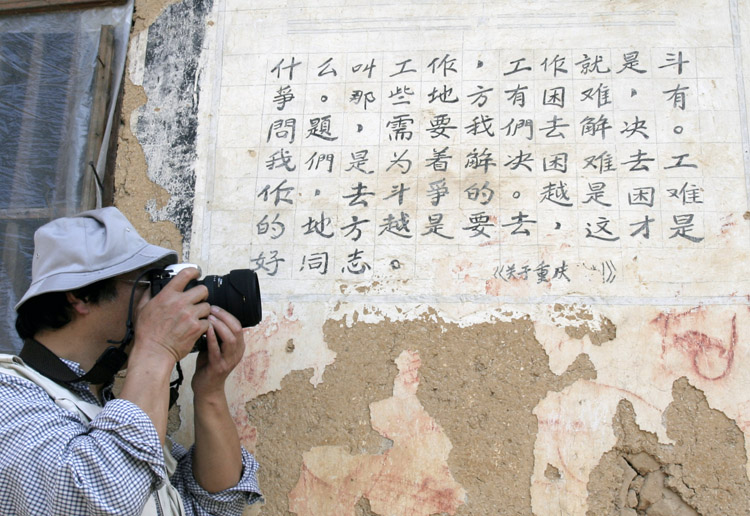 什么叫工作，工作就是斗
爭。那些地方有困難，有
問題，需要我們去解决。
我們是为着解决困難去工
作，去斗爭的。越是困難
的地方越是要去，这才是
好同志。《关于重庆 》